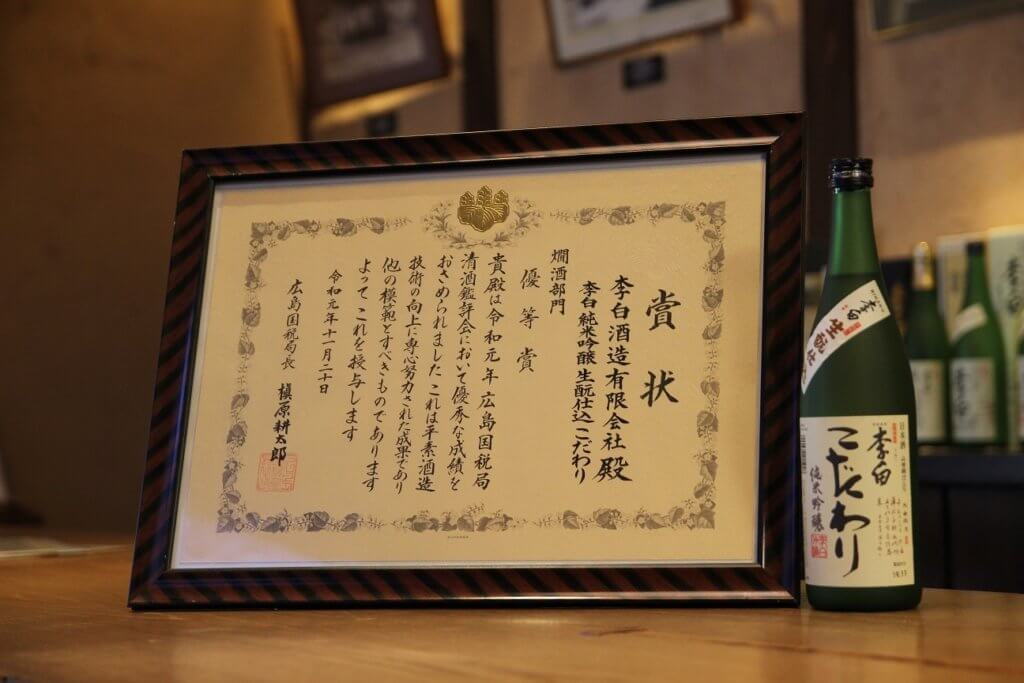 賞状
李白酒造有限会社殿
李白純米吟醸生酛仕込こだわり
燗酒部門
優等賞
貴殿は令和元年広島国税局
清酒鑑評会において優秀な成績を
おさめられましたこれは平素酒造
技術の向上に専心努力された成果であり
他の模範とすべきものであります
よってこれを授与します
令和元年十一月二十日
広島国税局長 槇原耕太郎
李白
生酛仕込
日本酒
李白
こだわり
純米吟醸